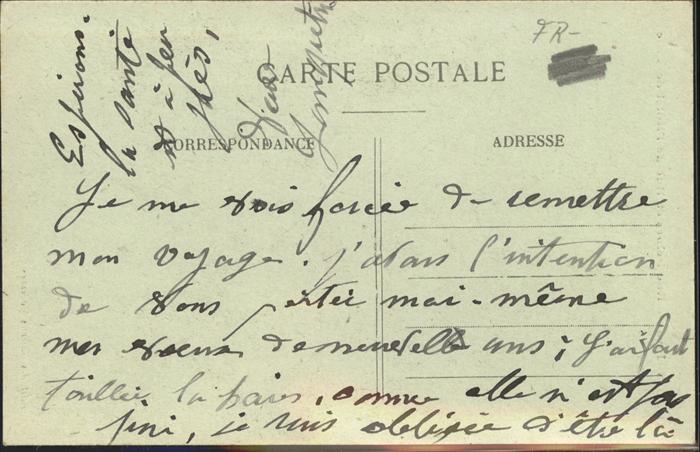 FR-
CARTE POSTALE
CORRESPONDANCE
ADRESSE
Je me vois forcée de remettre
mon voyage. j'avais l'intention
de vous porter moi-même
mes voeux de nouvelle ans; J'ai fait
tailler la haies, comme elle n'est pas
fini, je suis obligée d'être là
Espérons.
la santé
est à peu
près,